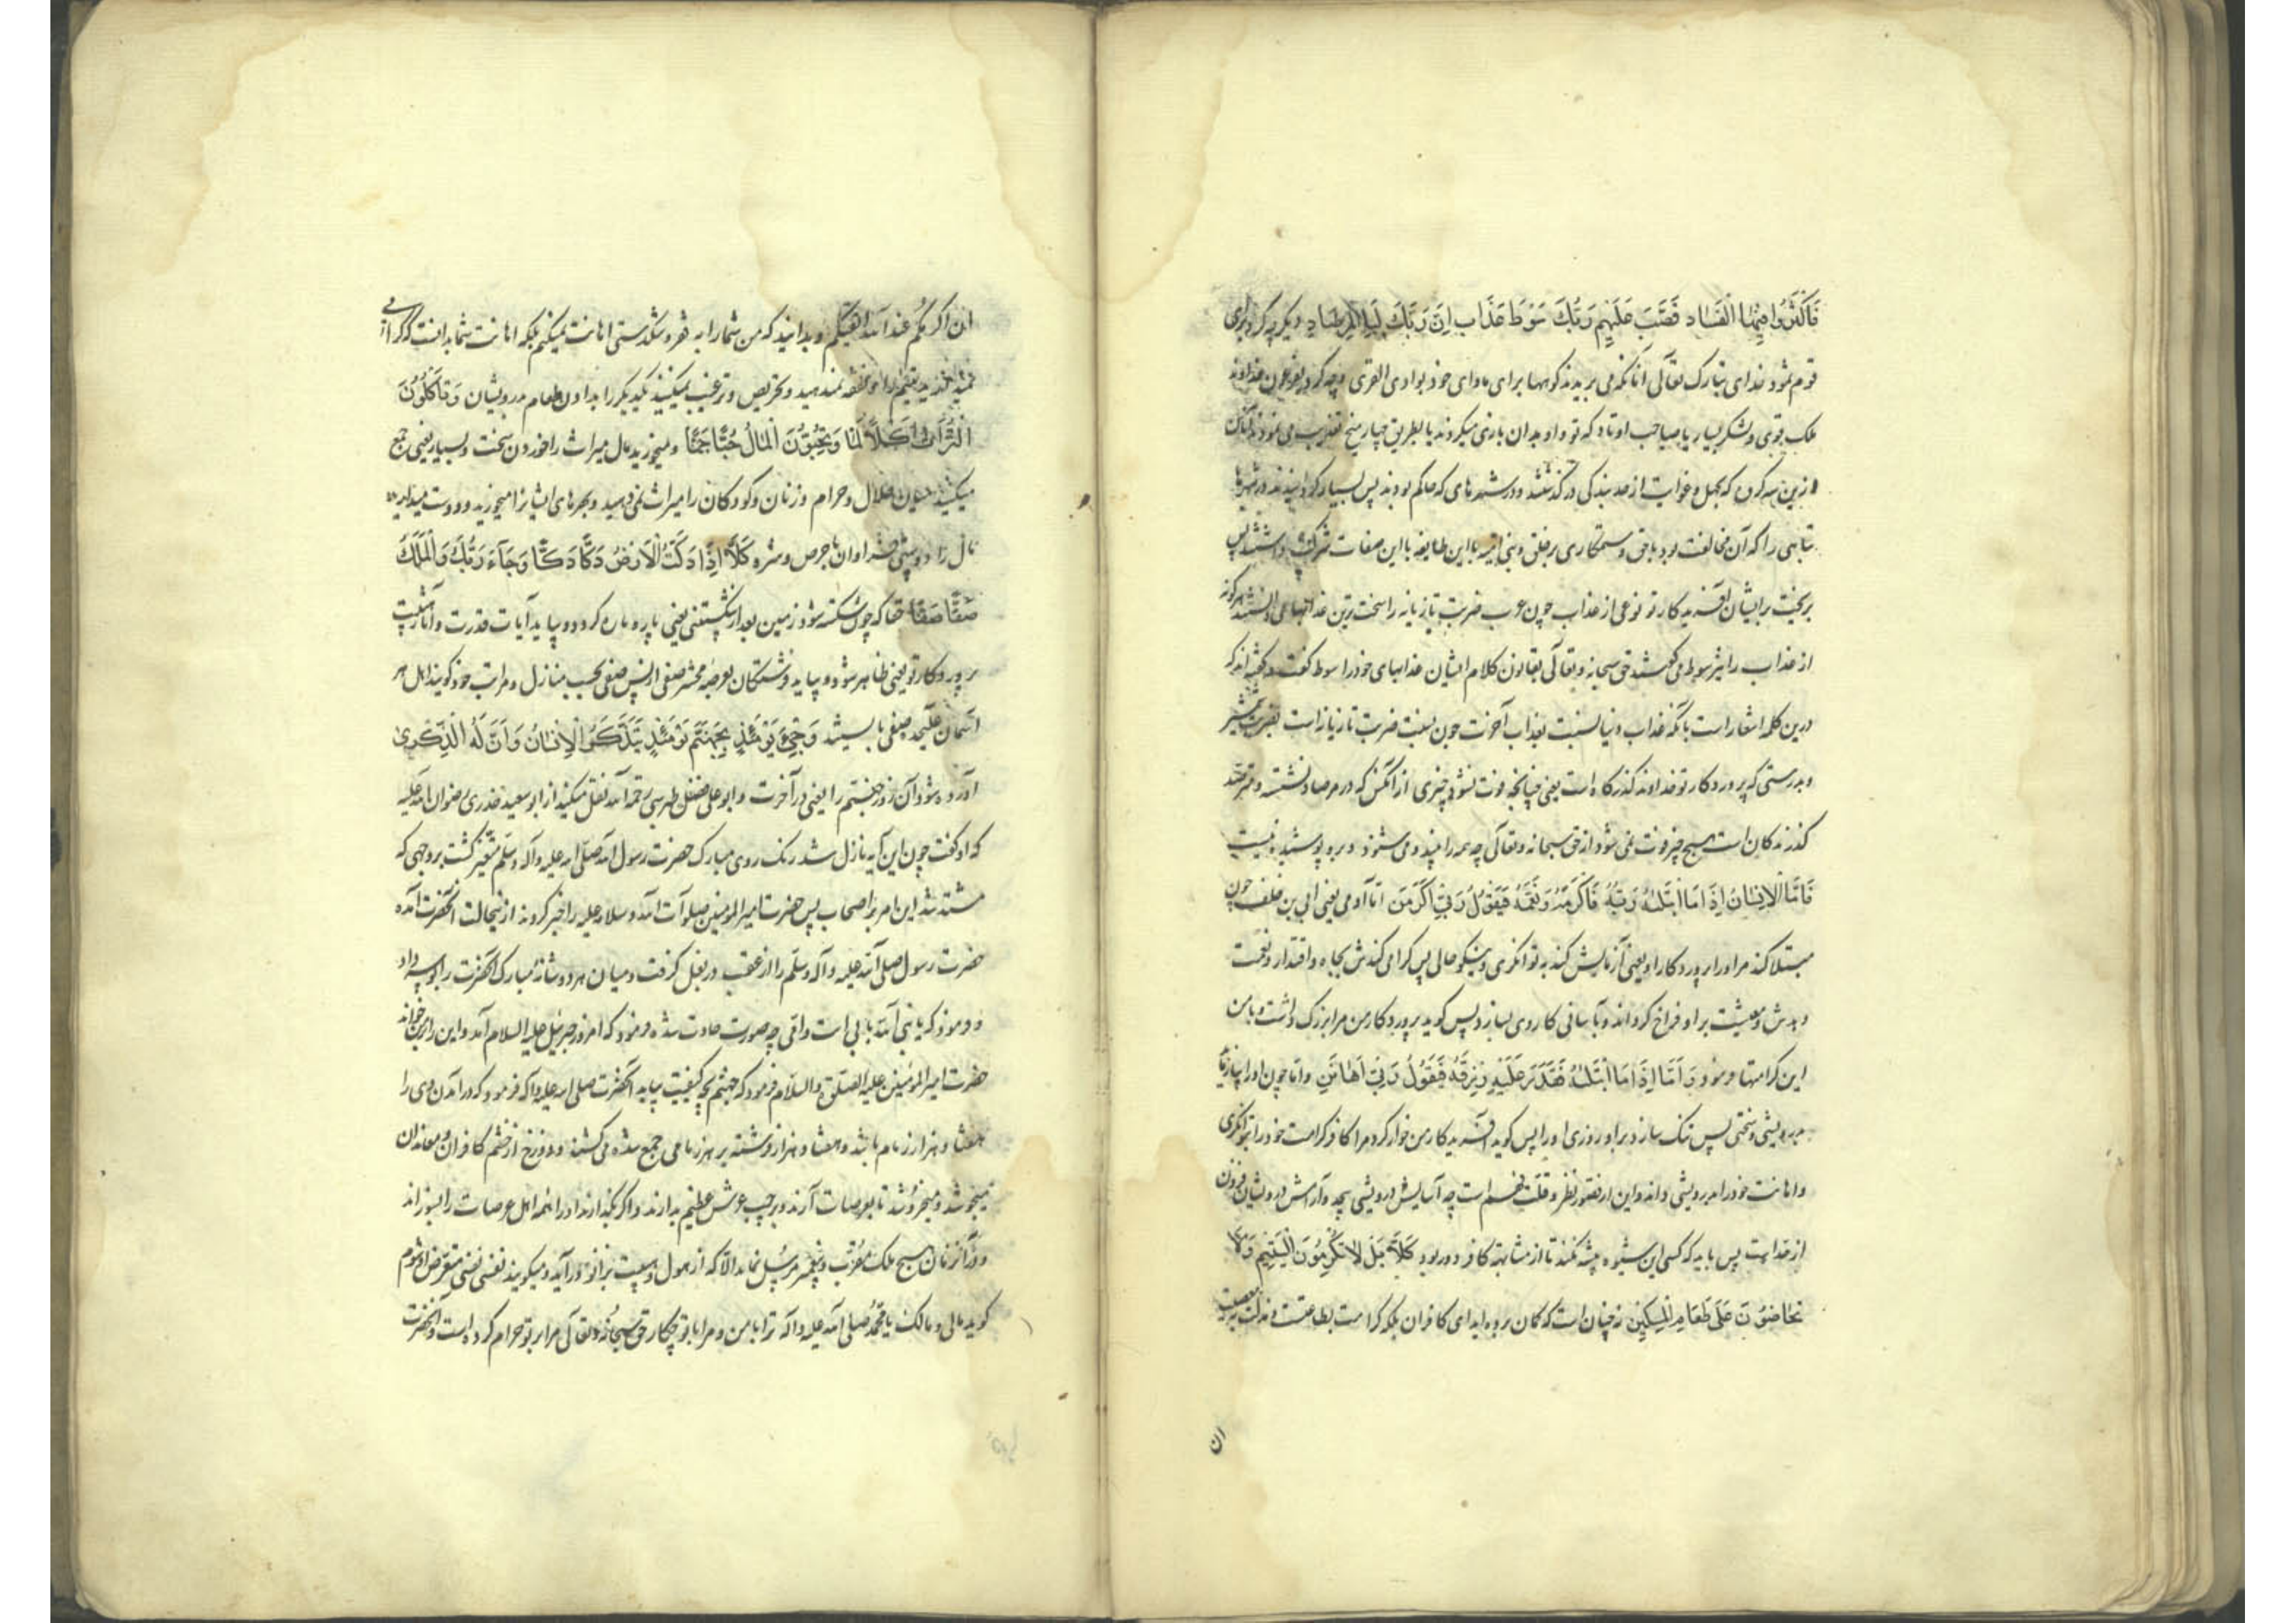 فَاَكْثَرُوا فِيهَا الْفَسَاد فَصَبَّ عَلَيْهِم رَبُّكَ سَوْطَ عَذَاب اِنَّ رَبَّكَ لَبِالْمِرْصَادِ و دیگر چه کرد
قوم ثمود خدای تبارک تعالی انانکه می بریدند کوهها برای ماوای خود بوادی القری و چه کرد بفرعون خداوند
ملک قوی و لشکر بسیار یا صاحب اوتاد که تو و اوبدان بازی میکردند یا بطریق چهار میخ تعذیب می نمودند
ازین سرکرن که بجهل و غوایت از حد بندگی در گذشتند و در شهرهای که حاکم بودند پس بسیار کردانیدند در شهرها
تباهی را که آن مخالفت بود باحق و ستمکاری بر خلق و بنی امیه با این طایفه با این صفات شرکت داشتند پس
بریخت بر ایشان آفریدکار تو نوعی از عذاب چون عرب ضربت تازیانه را سخت ترین عذابها می دانستند هر گونه
از عذاب را نیز سوط می گفتند حق سبحانه و تعالی بقانون کلام ایشان عذابهای خود را سوط گفت و گفته اند که
درین کلمه اشعار است بآنکه عذاب دنیا نسبت بعذاب آخرت چون نسبت ضربت تازیانه است بضربت شمشیر
و بدرستی که پروردکار تو خداوند کذرکاه است یعنی چنانچه فوت نشود چیزی از آنکس که در مرصاد نشسته و مترصد
کذرندکان است هیچ چیز فوت نمی شود از حق سبحانه و تعالی چه همه را میبیند و می شنود و برو پوشیده نیست
فَاَمَّا الْاِنْسَانُ اِذَا مَا ابْتَلٰىهُ رَبُّهُ فَاَكْرَمَهُ وَنَعَّمَهُ فَيَقُولُ رَبِّي اَكْرَمَنِ اما آدمی یعنی ابی بن خلف چون
مبتلا کند مر او را پروردکار او یعنی آزمایش کند به توانکری و نیکو حالی پس کرامی کندش بجاه و اقتدار و نعمت
دهدش و معیشت بر او فراخ کرداند و بآسانی کار وی بسازد پس کوید پروردکار من مرا بزرک داشت و با من
این کرامتها فرمود وَاَمَّا اِذَا مَا ابْتَلٰىهُ فَقَدَرَ عَلَيْهِ رِزْقَهُ فَيَقُولُ رَبِّي اَهَانَنِ و اما چون او را بیازماید
بدرویشی و سختی پس تنک سازد بر او روزی او را پس کوید آفریدکار من خوار کرد مرا کافر کرامت خود را بتوانکری
و اهانت خود را بدرویشی داند و این از قصور نظر و قلت فهم است چه آسایش درویشی بیحد و آرامش درویشان فزون
از حد است پس باید که کسی این شیوه پیشه نکند تا از مشابهت کافر دور بود كَلَّا بَلْ لَا تُكْرِمُونَ الْيَتِيمَ وَلَا
تَحَاضُّونَ عَلَى طَعَامِ الْمِسْكِينِ نه چنان است که کمان برده اید ای کافران بلکه کرامت بطاعتست و مذلت بمعصیت
ان
ان اکرمکم عند الله اتقیکم و بدانید که من شما را به فقر و تنکدستی اهانت نمیکنم بلکه اهانت شما بدانست که
یتیم را و نفقه نمیدهید و تحریص و ترغیب نمیکنید یکدیکر را بدادن طعام درویشان وَتَأْكُلُونَ
التُّرَاثَ اَكْلًا لَمًّا وَتُحِبُّونَ الْمَالَ حُبًّا جَمًّا و میخورید مال میراث را خوردن سخت و بسیار یعنی جمع
میکنید میان حلال و حرام و زنان و کودکان را میراث نمی دهید و بهرهای ایشانرا میخورید و دوست میدارید
مال را دوستی فراوان با حرص و شره كَلَّا اِذَا دُكَّتِ الْاَرْضُ دَكًّا دَكًّا وَجَآءَ رَبُّكَ وَالْمَلَكُ
صَفًّا صَفًّا حقا که چون شکسته شود زمین بعد از شکستنی یعنی پاره پاره کردد و بیاید آیات قدرت و آثار هیبت
پروردکار تو یعنی ظاهر شود و بیاید فرشتکان بعرصه محشر صفی از پس صفی بحسب منازل و مراتب خود کویند اهل هر
آسمان علیحده صفی باشند وَجِيءَ يَوْمَئِذٍ بِجَهَنَّمَ يَوْمَئِذٍ يَتَذَكَّرُ الْاِنْسَانُ وَاَنَّى لَهُ الذِّكْرٰى
آورده شود آن روز جهنم را یعنی در آخرت و ابو علی فضل طبرسی رحمه الله نقل میکند از ابو سعید خدری رضوان الله علیه
که او کفت چون این آیه نازل شد رنک روی مبارک حضرت رسول الله صلی الله علیه و آله و سلم متغیر کشت بروجهی که
مشتد شد این امر بر اصحاب پس حضرت امیر المومنین صلوات الله و سلامه علیه را خبر کردند از نیحالت آنحضرت آمده
حضرت رسول صلی الله علیه و آله و سلم را از عقب در بغل کرفت و میان هر دو شانه مبارک آنحضرت را بوسه داد
و فرمود که یا نبی الله بابی انت و امی چه صورت حادث شده فرمود که امروز جبرئیل علیه السلام آمد و این را بر من خواند
حضرت امیر المؤمنین علیه الصلوة و السلام فرمود که جهنم بچه کیفیت بیاید آنحضرت صلی الله علیه و آله فرمود که در آمدن وی را
هفتاد هزار زمام باشد و هفتاد هزار فرشته بر هر زمامی جمع شده می کشند و دوزخ از خشم کافران و معاندان
میجوشد و میخروشد تا بعرصات آرند و بر چپ عرش عظیم بدارند و اکر بگذارند او را همه اهل عرصات را بسوزاند
و در آنزمان هیچ ملک مقرب و پیغمبر مرسل نماند الا که از هول و هیبت بزانو درآید و میکویند نفسی نفسی
کوید مالی و مالک یا محمد صلی الله علیه و آله ترا با من و مرا با تو چکار حق سبحانه و تعالی مرا بر تو حرام کرده است و آنحضرت